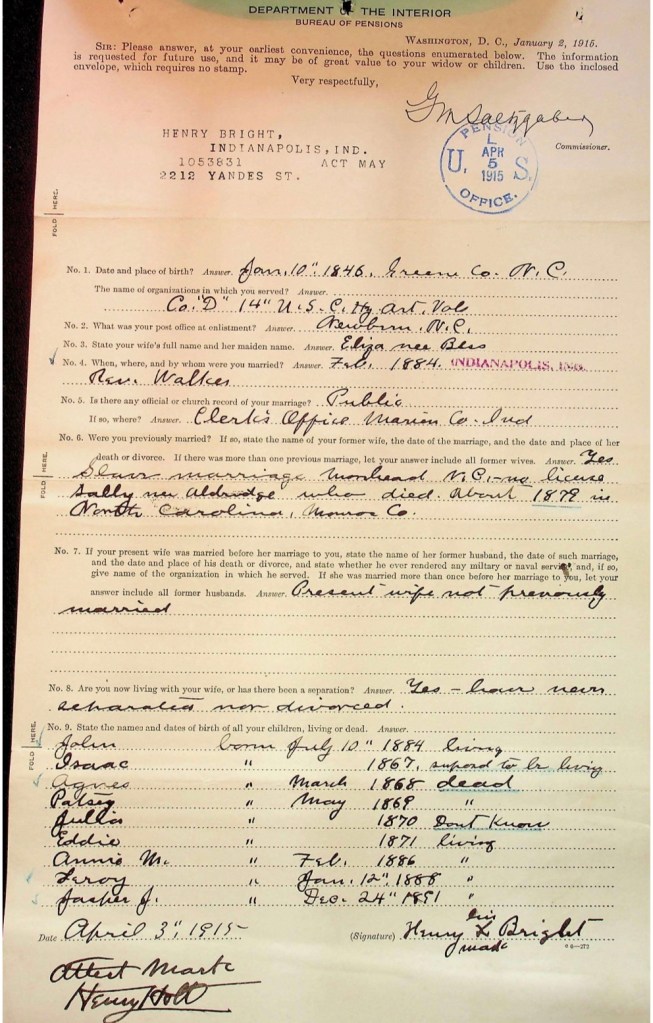 DEPARTMENT OF THE INTERIOR
BUREAU OF PENSIONS
WASHINGTON, D. C., January 2, 1915.
SIR: Please answer, at your earliest convenience, the questions enumerated below. The information
is requested for future use, and it may be of great value to your widow or children. Use the inclosed
envelope, which requires no stamp.
Very respectfully,
G M Saltzgaber
Commissioner.
HENRY BRIGHT,
INDIANAPOLIS, IND.
1053831 ACT MAY
2212 YANDES ST.
PENSION
L
U. APR S.
5
1915
OFFICE.
FOLD HERE.
No. 1. Date and place of birth? Answer. Jan. 10" 1846, Greene Co. N. C.
The name of organizations in which you served? Answer.
Co. "D" 14" U. S. C. Hy Art. Vol
No. 2. What was your post office at enlistment? Answer. Newburn, N. C.
No. 3. State your wife's full name and her maiden name. Answer. Eliza nee
No. 4. When, where, and by whom were you married? Answer. Feb. 1884. INDIANAPOLIS, IND.
Rev. Walker
No. 5. Is there any official or church record of your marriage? Public
If so, where? Answer. Clerk's Office Marion Co. Ind
No. 6. Were you previously married? If so, state the name of your former wife, the date of the marriage, and the date and place of her
death or divorce. If there was more than one previous marriage, let your answer include all former wives. Answer. Yes
FOLD HERE.
Slave marriage Morehead N. C. - no license
Sally nee Aldridge who died. About 1879 in
North Carolina, Co.
No. 7. If your present wife was married before her marriage to you, state the name of her former husband, the date of such marriage,
and the date and place of his death or divorce, and state whether he ever rendered any military or naval service, and, if so,
give name of the organization in which he served. If she was married more than once before her marriage to you, let your
answer include all former husbands. Answer. Present wife not previously
married
No. 8. Are you now living with your wife, or has there been a separation? Answer. Yes - have never
separated nor divorced.
No. 9. State the names and dates of birth of all your children, living or dead. Answer.
FOLD HERE.
John born July 10" 1884 living
Isaac " 1867, suposd to be living
Agnes " March 1868 dead
Patsey " May 1869 "
Julia " 1870 Dont Know
Eddie " 1871 living
Annie M. " Feb. 1886 "
Leroy " Jan. 12" 1888 "
Jasper J. " Dec. 24" 1891 "
Date April 3", 1915 (Signature) Henry his X Bright
mark
6-277
Attest Mark
Henry Holt